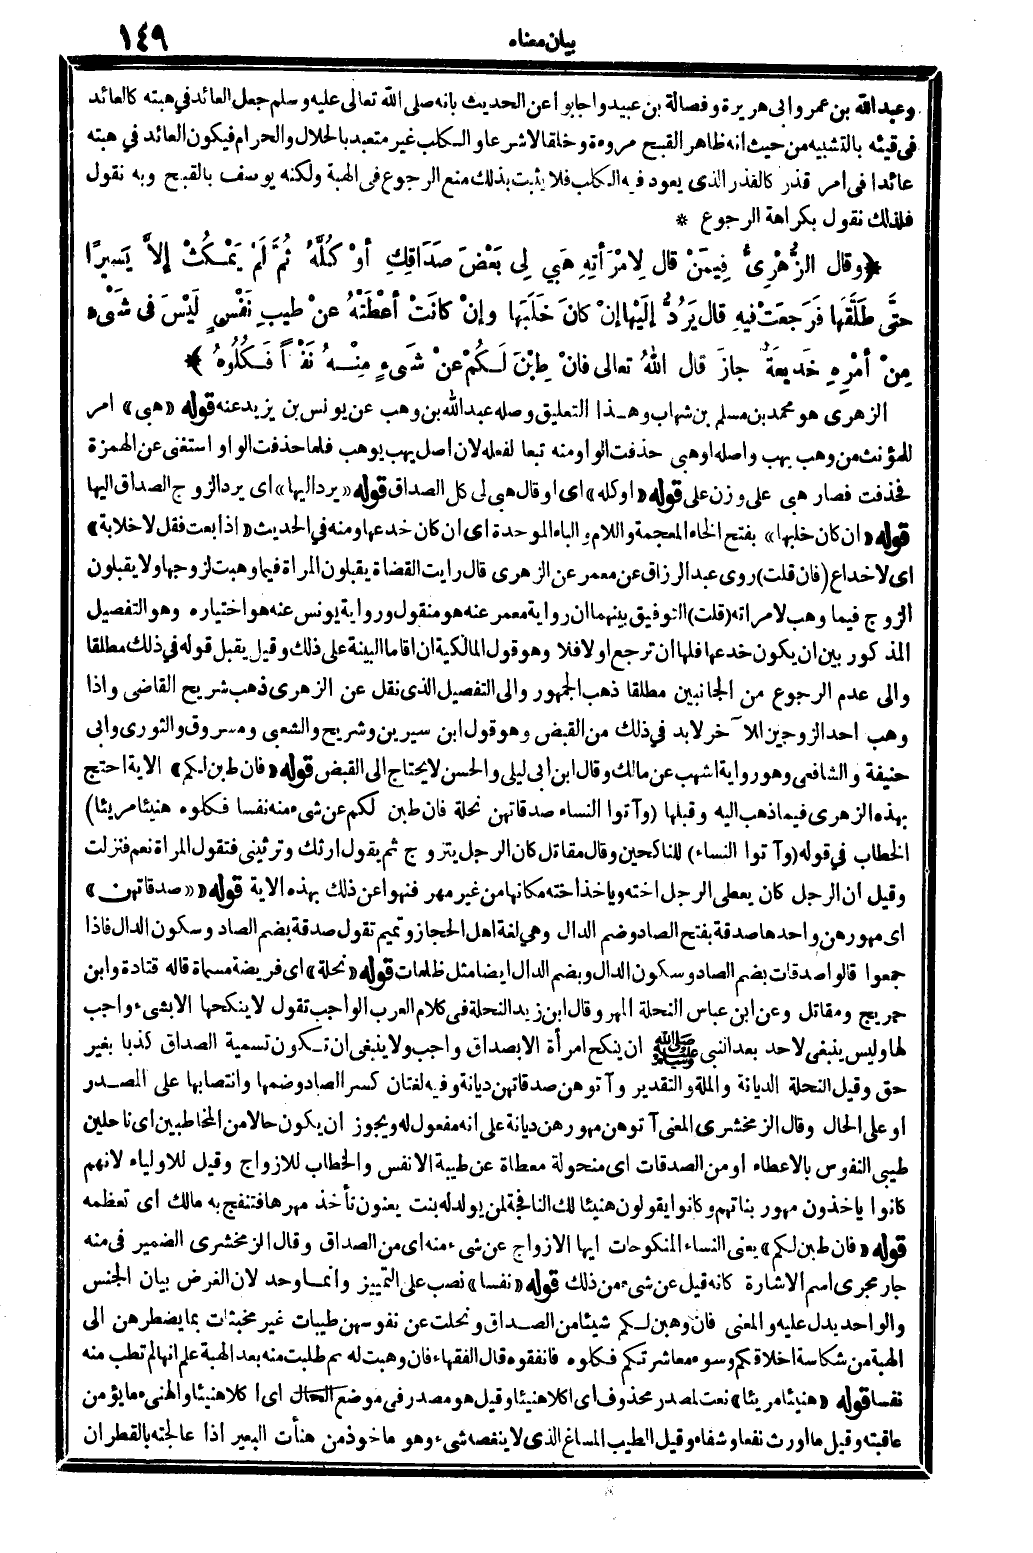 بيان معناه
١٤٩
وعبدالله بن عمر وابى هريرة وفصالة بن عبيد واجابوا عن الحديث بانه صلى الله تعالى عليه وسلم جعل العائد فى هبته كالعائد
فى قيئه بالتشبيه من حيث انه ظاهر القبح مروءة وخلقا لا شرعا والكلب غير متعبد بالحلال والحرام فيكون العائد فى هبته
عائدا فى امر قذر كالقذر الذى يعود فيه الكلب فلا يثبت بذلك منع الرجوع فى الهبة ولكنه يوصف بالقبح وبه نقول
فلذلك نقول بكراهة الرجوع *
﴿وقال الزُّهْرِىُّ فِيمَنْ قال لِامْرَأتِهِ هَبِي لِى بَعْضَ صَدَاقِكِ أوْ كُلَّهُ ثُمَّ لَمْ يَمْكُثْ إلاَّ يَسيرًا
حتَّى طَلَّقَها فَرَجَعَتْ فيهِ قال يَرُدُّ إلَيْها إنْ كانَ خَلَبَها وإنْ كانَتْ أعْطَتْهُ عنْ طيبِ نَفْسٍ لَيْسَ فى شَىْء
مِنْ أمْرِهِ خَديعَةٌ جازَ قال اللهُ تعالى فانْ طِبْنَ لَكُمْ عنْ شَىءٍ مِنْهُ نَفْساً فَكُلُوهُ﴾
الزهرى هو محمد بن مسلم بن شهاب وهذا التعليق وصله عبدالله بن وهب عن يونس بن يزيد عنه قوله «هبى» امر
للمؤنث من وهب يهب واصله اوهبى حذفت الواو منه تبعا لفعله لان اصل يهب يوهب فلما حذفت الواو استغنى عن الهمزة
فحذفت فصار هبى على وزن على قوله «اوكله» اى او قال هبى لى كل الصداق قوله «يرد اليها» اى يرد الزوج الصداق اليها
قوله «ان كان خلبها» بفتح الخاء المعجمة واللام والباء الموحدة اى ان كان خدعها ومنه فى الحديث «اذا بعت فقل لا خلابة»
اى لا خداع (فان قلت) روى عبد الرزاق عن معمر عن الزهرى قال رايت القضاة يقبلون المراة فيما وهبت لزوجها ولا يقبلون
الزوج فيما وهب لامراته (قلت) التوفيق بينهما ان رواية معمر عنه هو منقول ورواية يونس عنه هو اختياره وهو التفصيل
المذكور بين ان يكون خدعها فلها ان ترجع اولا فلا وهو قول المالكية ان اقاما البينة على ذلك وقيل يقبل قوله فى ذلك مطلقا
والى عدم الرجوع من الجانبين مطلقا ذهب الجمهور والى التفصيل الذى نقل عن الزهرى ذهب شريح القاضى واذا
وهب احد الزوجين الآخر لابد فى ذلك من القبض وهو قول ابن سيرين وشريح والشعبى ومسروق والثورى وابى
حنيفة والشافعى وهو رواية اشهب عن مالك وقال ابن ابى ليلى والحسن لا يحتاج الى القبض قوله «فان طبن لكم» الاية احتج
بهذه الزهرى فيما ذهب اليه وقبلها (وآتوا النساء صدقاتهن نحلة فان طبن لكم عن شىء منه نفسا فكلوه هنيئا مريئا)
الخطاب فى قوله (وآتوا النساء) للناكحين وقال مقاتل كان الرجل يتزوج ثم يقول ارثك وترثينى فتقول المراة نعم فنزلت
وقيل ان الرجل كان يعطى الرجل اخته وياخذ اخته مكانها من غير مهر فنهوا عن ذلك بهذه الاية قوله «صدقاتهن»
اى مهورهن واحدها صدقة بفتح الصاد وضم الدال وهى لغة اهل الحجاز وتميم تقول صدقة بضم الصاد وسكون الدال فاذا
جمعوا قالوا صدقات بضم الصاد وسكون الدال وبضم الدال ايضا مثل ظلمات قوله «نحلة» اى فريضة مسماة قاله قتادة وابن
جريج ومقاتل وعن ابن عباس النحلة المهر وقال ابن زيد النحلة فى كلام العرب الواجب تقول لا ينكحها الا بشىء واجب
لها وليس ينبغى لاحد بعد النبى ﷺ ان ينكح امرأة الا بصداق واجب ولا ينبغى ان تكون تسمية الصداق كذبا بغير
حق وقيل النحلة الديانة والملة والتقدير وآتوهن صدقاتهن ديانة وفيه لغتان كسر الصاد وضمها وانتصابها على المصدر
او على الحال وقال الزمخشرى المعنى آتوهن مهورهن ديانة على انه مفعول له ويجوز ان يكون حالا من المخاطبين اى ناحلين
طيبى النفوس بالاعطاء او من الصدقات اى منحولة معطاة عن طيبة الانفس والخطاب للازواج وقيل للاولياء لانهم
كانوا ياخذون مهور بناتهم وكانوا يقولون هنيئا لك النافجة لمن يولد له بنت يعنون تأخذ مهرها فتنفج به مالك اى تعظمه
قوله «فان طبن لكم» يعنى النساء المنكوحات ايها الازواج عن شىء منه اى من الصداق وقال الزمخشرى الضمير فى منه
جار مجرى اسم الاشارة كانه قيل عن شىء من ذلك قوله «نفسا» نصب على التمييز وانما وحد لان الغرض بيان الجنس
والواحد يدل عليه والمعنى فان وهبن لكم شيئا من الصداق ونحلت عن نفوسهن طيبات غير مخبثات بما يضطرهن الى
الهبة من شكاسة اخلاقكم وسوء معاشرتكم فكلوه فانفقوه قال الفقهاء فان وهبت له ثم طلبت منه بعد الهبة علم انها لم تطب منه
نفسا قوله «هنيئا مريئا» نعت لمصدر محذوف اى اكلا هنيئا وقيل هو مصدر فى موضع الحال اى اكلا هنيئا والهنىء ما يؤمن
عاقبته وقيل ما اورث نفعا وشفاء وقيل الطيب المساغ الذى لا ينغصه شىء وهو ماخوذ من هنأت البعير اذا عالجته بالقطران